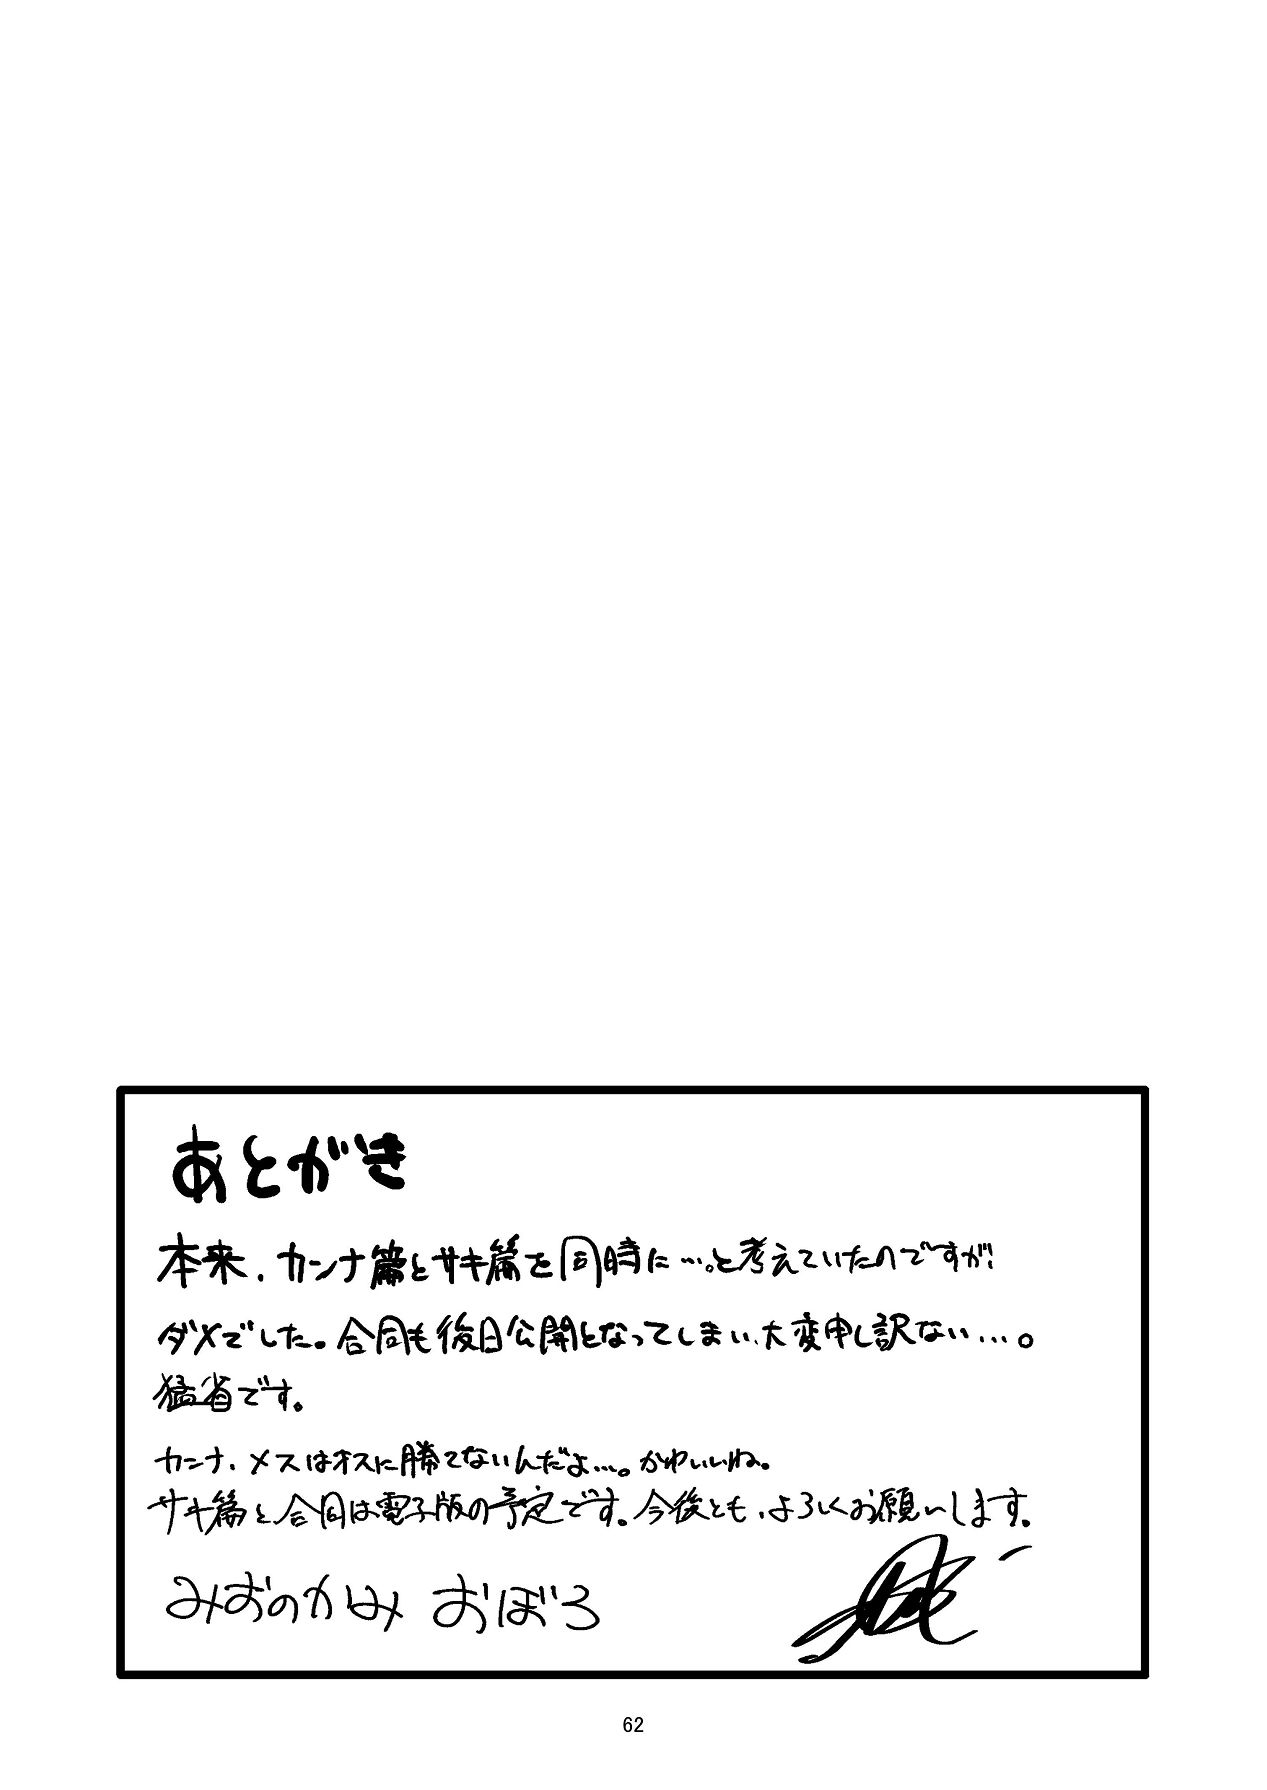 あとがき
本来、カンナ篇とサキ篇を同時に…。と考えていたのですが!
ダメでした。合同も後日公開となってしまい、大変申し訳ない…。
猛省です。
カンナ、メスはオスに勝てないんだよ…。かわいいね。
サキ篇と、合同は電子版の予定です。今後とも、よろしくお願いします。
みおのかみ おぼろ
62